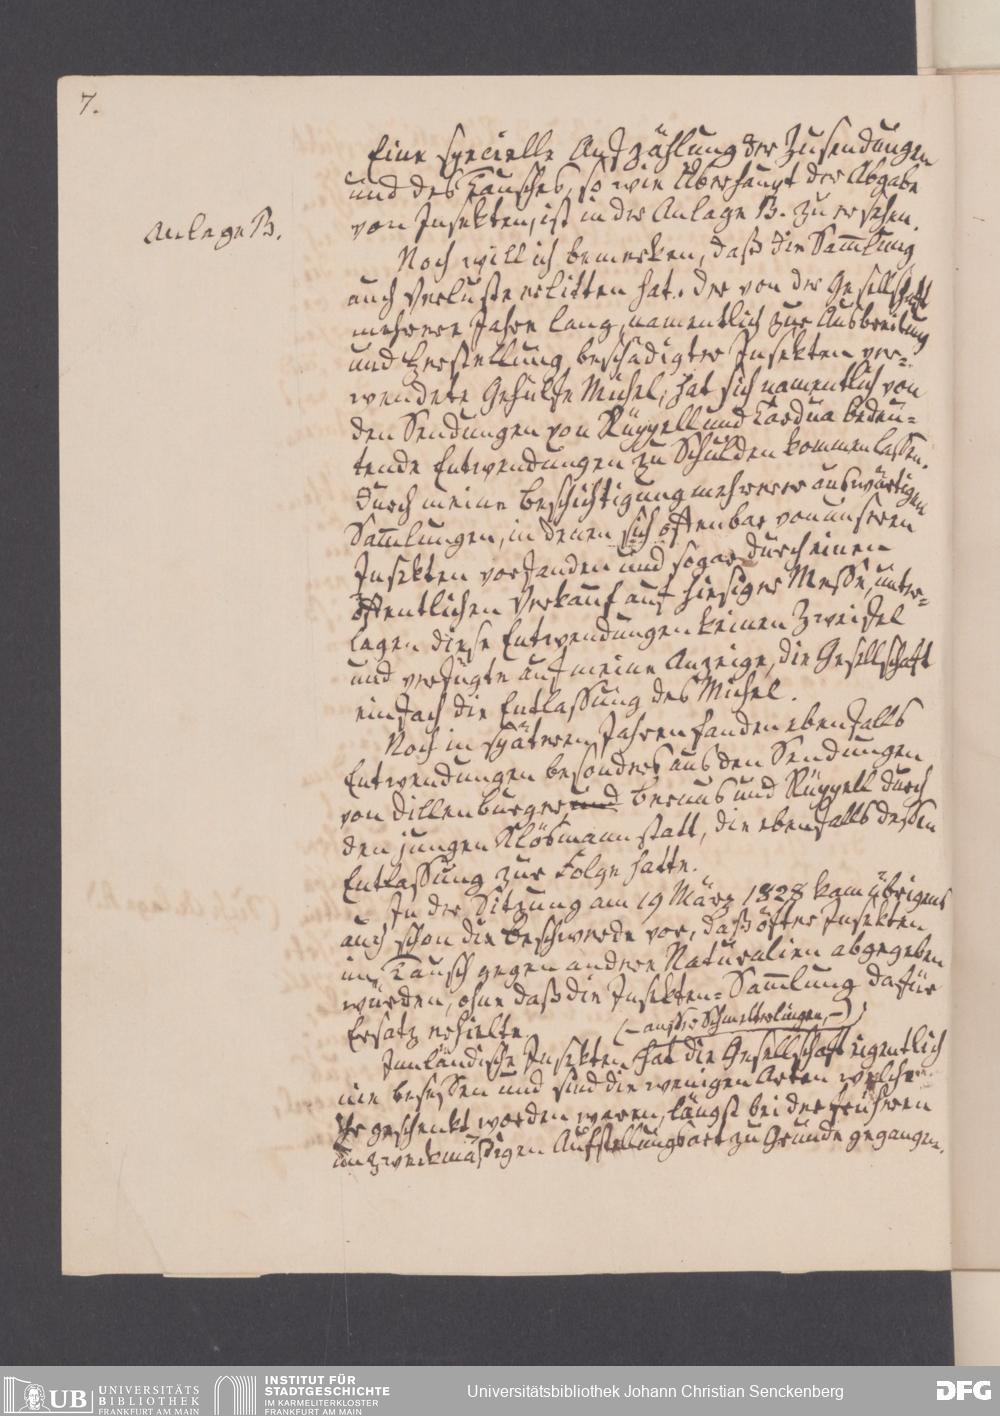 7.
Eine specielle Aufzählung der Zusendungen
und des Tausches, so wie Überhaupt der Abgabe
von Insekten, ist in der Anlage B. zu ersehen.
Anlage B.
Noch will ich bemerken, daß die Sam̄lung
auch Verluste erlitten hat. Der von der Gesellschaft
mehrere Jahre lang, namentlich zur Ausbreitung
und Herstellung beschädigter Insekten ver-
wendete Gehülfe Michel, hat sich namentlich von
den Sendungen von Rüppell und Cardua bedeu-
tende Entwendungen zu Schulden kommen lassen.
Durch meine Besichtigung mehrerer auswärtigen
Sam̄lungen, in denen sich offenbar von unseren
Insekten vorfanden und sogar durch einen
öffentlichen Verkauf auf hiesiger Messe, unter-
lagen diese Entwendungen keinen Zweifel
und verfügte auf meine Anzeige, die Gesellschaft
einfach die Entlassung des Michel.
Noch in späteren Jahren fanden ebenfalls
Entwendungen besonders aus den Sendungen
von Dillenburger und Beraus und Rüppell durch
den jungen Klösmann statt, die ebenfalls dessen
Entlassung zur Folge hatte.
In der Sitzung am 19 März 1828 kam übrigens
auch schon die Beschwerde vor, daß öfter Insekten
im Tausch gegen andere Naturalien abgegeben
würden, ohne daß die Insekten-Sam̄lung dafür
Ersatz erhielte.
(– ausser Schmetterlingen, –)
Inländische Insekten hat die Gesellschaft eigentlich
nie besessen und sind die wenigen Arten welche
Ihr geschenkt worden waren, längst bei der früheren
unzweckmäßigen Aufstellungsart zu Grunde gegangen.
UB UNIVERSITÄTS
BIBLIOTHEK
FRANKFURT AM MAIN
INSTITUT FÜR
STADTGESCHICHTE
IM KARMELITERKLOSTER
FRANKFURT AM MAIN
Universitätsbibliothek Johann Christian Senckenberg
DFG